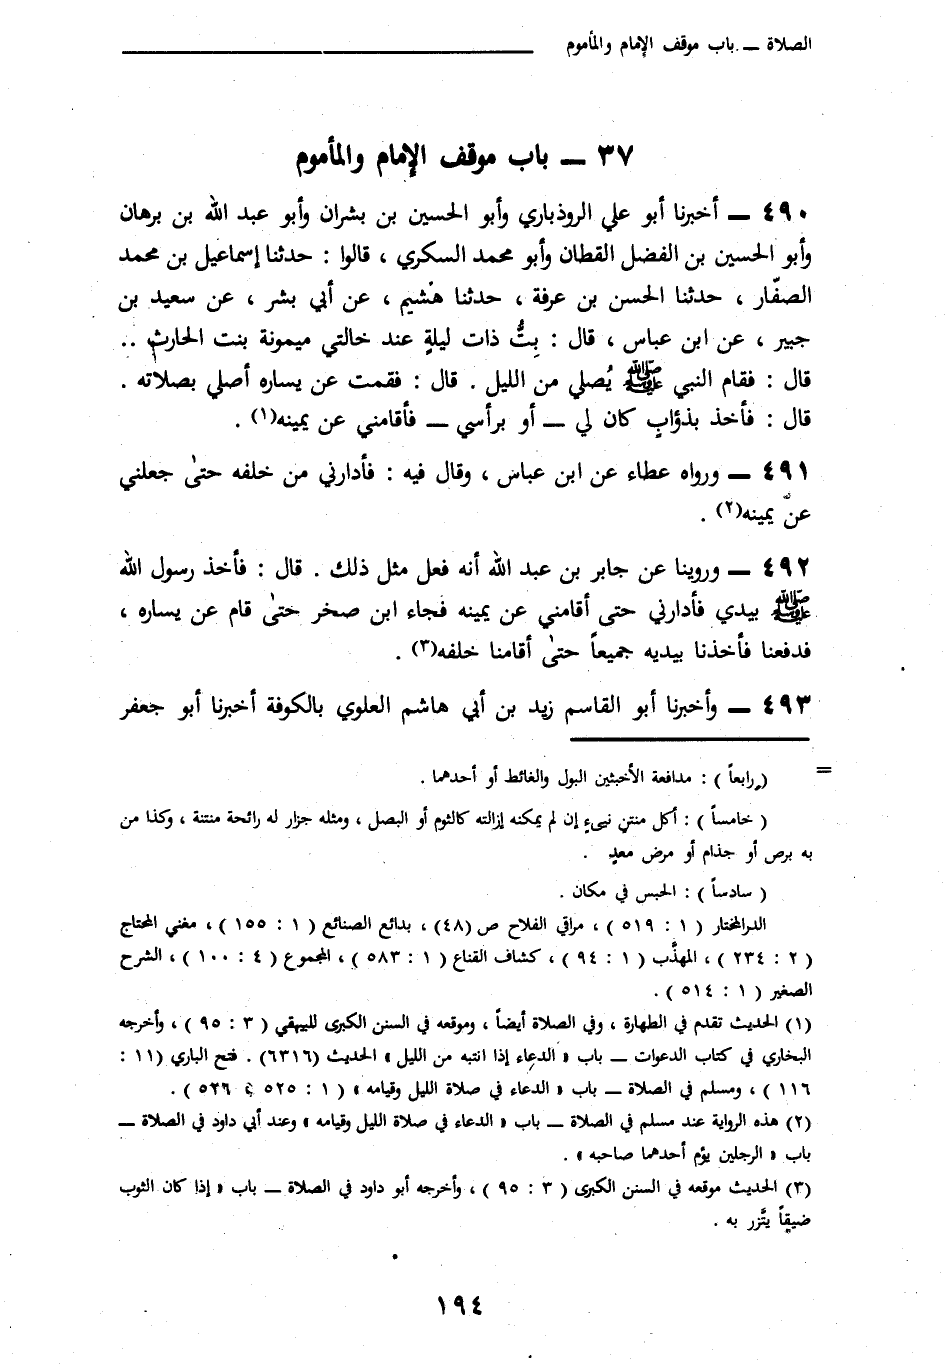 الصلاة ــ باب موقف الإمام والمأموم
٣٧ ــ باب موقف الإمام والمأموم
٤٩٠ ــ أخبرنا أبو علي الروذباري وأبو الحسين بن بشران وأبو عبد الله بن برهان
وأبو الحسين بن الفضل القطان وأبو محمد السكري ، قالوا : حدثنا إسماعيل بن محمد
الصفّار ، حدثنا الحسن بن عرفة ، حدثنا هُشيم ، عن أبي بشر ، عن سعيد بن
جبير ، عن ابن عباس ، قال : بِتُّ ذات ليلةٍ عند خالتي ميمونة بنت الحارث ..
قال : فقام النبي ﷺ يُصلي من الليل . قال : فقمت عن يساره أصلي بصلاته .
قال : فأخذ بذؤابٍ كان لي ــ أو برأسي ــ فأقامني عن يمينه(١) .
٤٩١ ــ ورواه عطاء عن ابن عباس ، وقال فيه : فأدارني من خلفه حتىٰ جعلني
عن يمينه(٢) .
٤٩٢ ــ وروينا عن جابر بن عبد الله أنه فعل مثل ذلك . قال : فأخذ رسول الله
ﷺ بيدي فأدارني حتى أقامني عن يمينه فجاء ابن صخر حتىٰ قام عن يساره ،
فدفعنا فأخذنا بيديه جميعاً حتىٰ أقامنا خلفه(٣) .
٤٩٣ ــ وأخبرنا أبو القاسم زيد بن أبي هاشم العلوي بالكوفة أخبرنا أبو جعفر
= ( رابعاً ) : مدافعة الأخبثين البول والغائط أو أحدهما .
( خامساً ) : أكل منتنٍ نيىءٍ إن لم يمكنه إزالته كالثوم أو البصل ، ومثله جزار له رائحة منتنة ، وكذا من
به برص أو جذام أو مرض معدٍ .
( سادساً ) : الحبس في مكان .
الدرالمختار ( ١ : ٥١٩ ) ، مراقي الفلاح ص (٤٨) ، بدائع الصنائع ( ١ : ١٥٥ ) ، مغني المحتاج
( ٢ : ٢٣٤ ) ، المهذَّب ( ١ : ٩٤ ) ، كشاف القناع ( ١ : ٥٨٣ ) ، المجموع ( ٤ : ١٠٠ ) ، الشرح
الصغير ( ١ : ٥١٤ ) .
(١) الحديث تقدم في الطهارة ، وفي الصلاة أيضاً ، وموقعه في السنن الكبرى للبيهقي ( ٣ : ٩٥ ) ، وأخرجه
البخاري في كتاب الدعوات ــ باب « الدعاء إذا انتبه من الليل » الحديث (٦٣١٦) . فتح الباري (١١ :
١١٦ ) ، ومسلم في الصلاة ــ باب « الدعاء في صلاة الليل وقيامه » ( ١ : ٥٢٥ ، ٥٢٦ ) .
(٢) هذه الرواية عند مسلم في الصلاة ــ باب « الدعاء في صلاة الليل وقيامه » وعند أبي داود في الصلاة ــ
باب « الرجلين يؤم أحدهما صاحبه » .
(٣) الحديث موقعه في السنن الكبرى ( ٣ : ٩٥ ) ، وأخرجه أبو داود في الصلاة ــ باب « إذا كان الثوب
ضيقاً يتَّزر به .
١٩٤